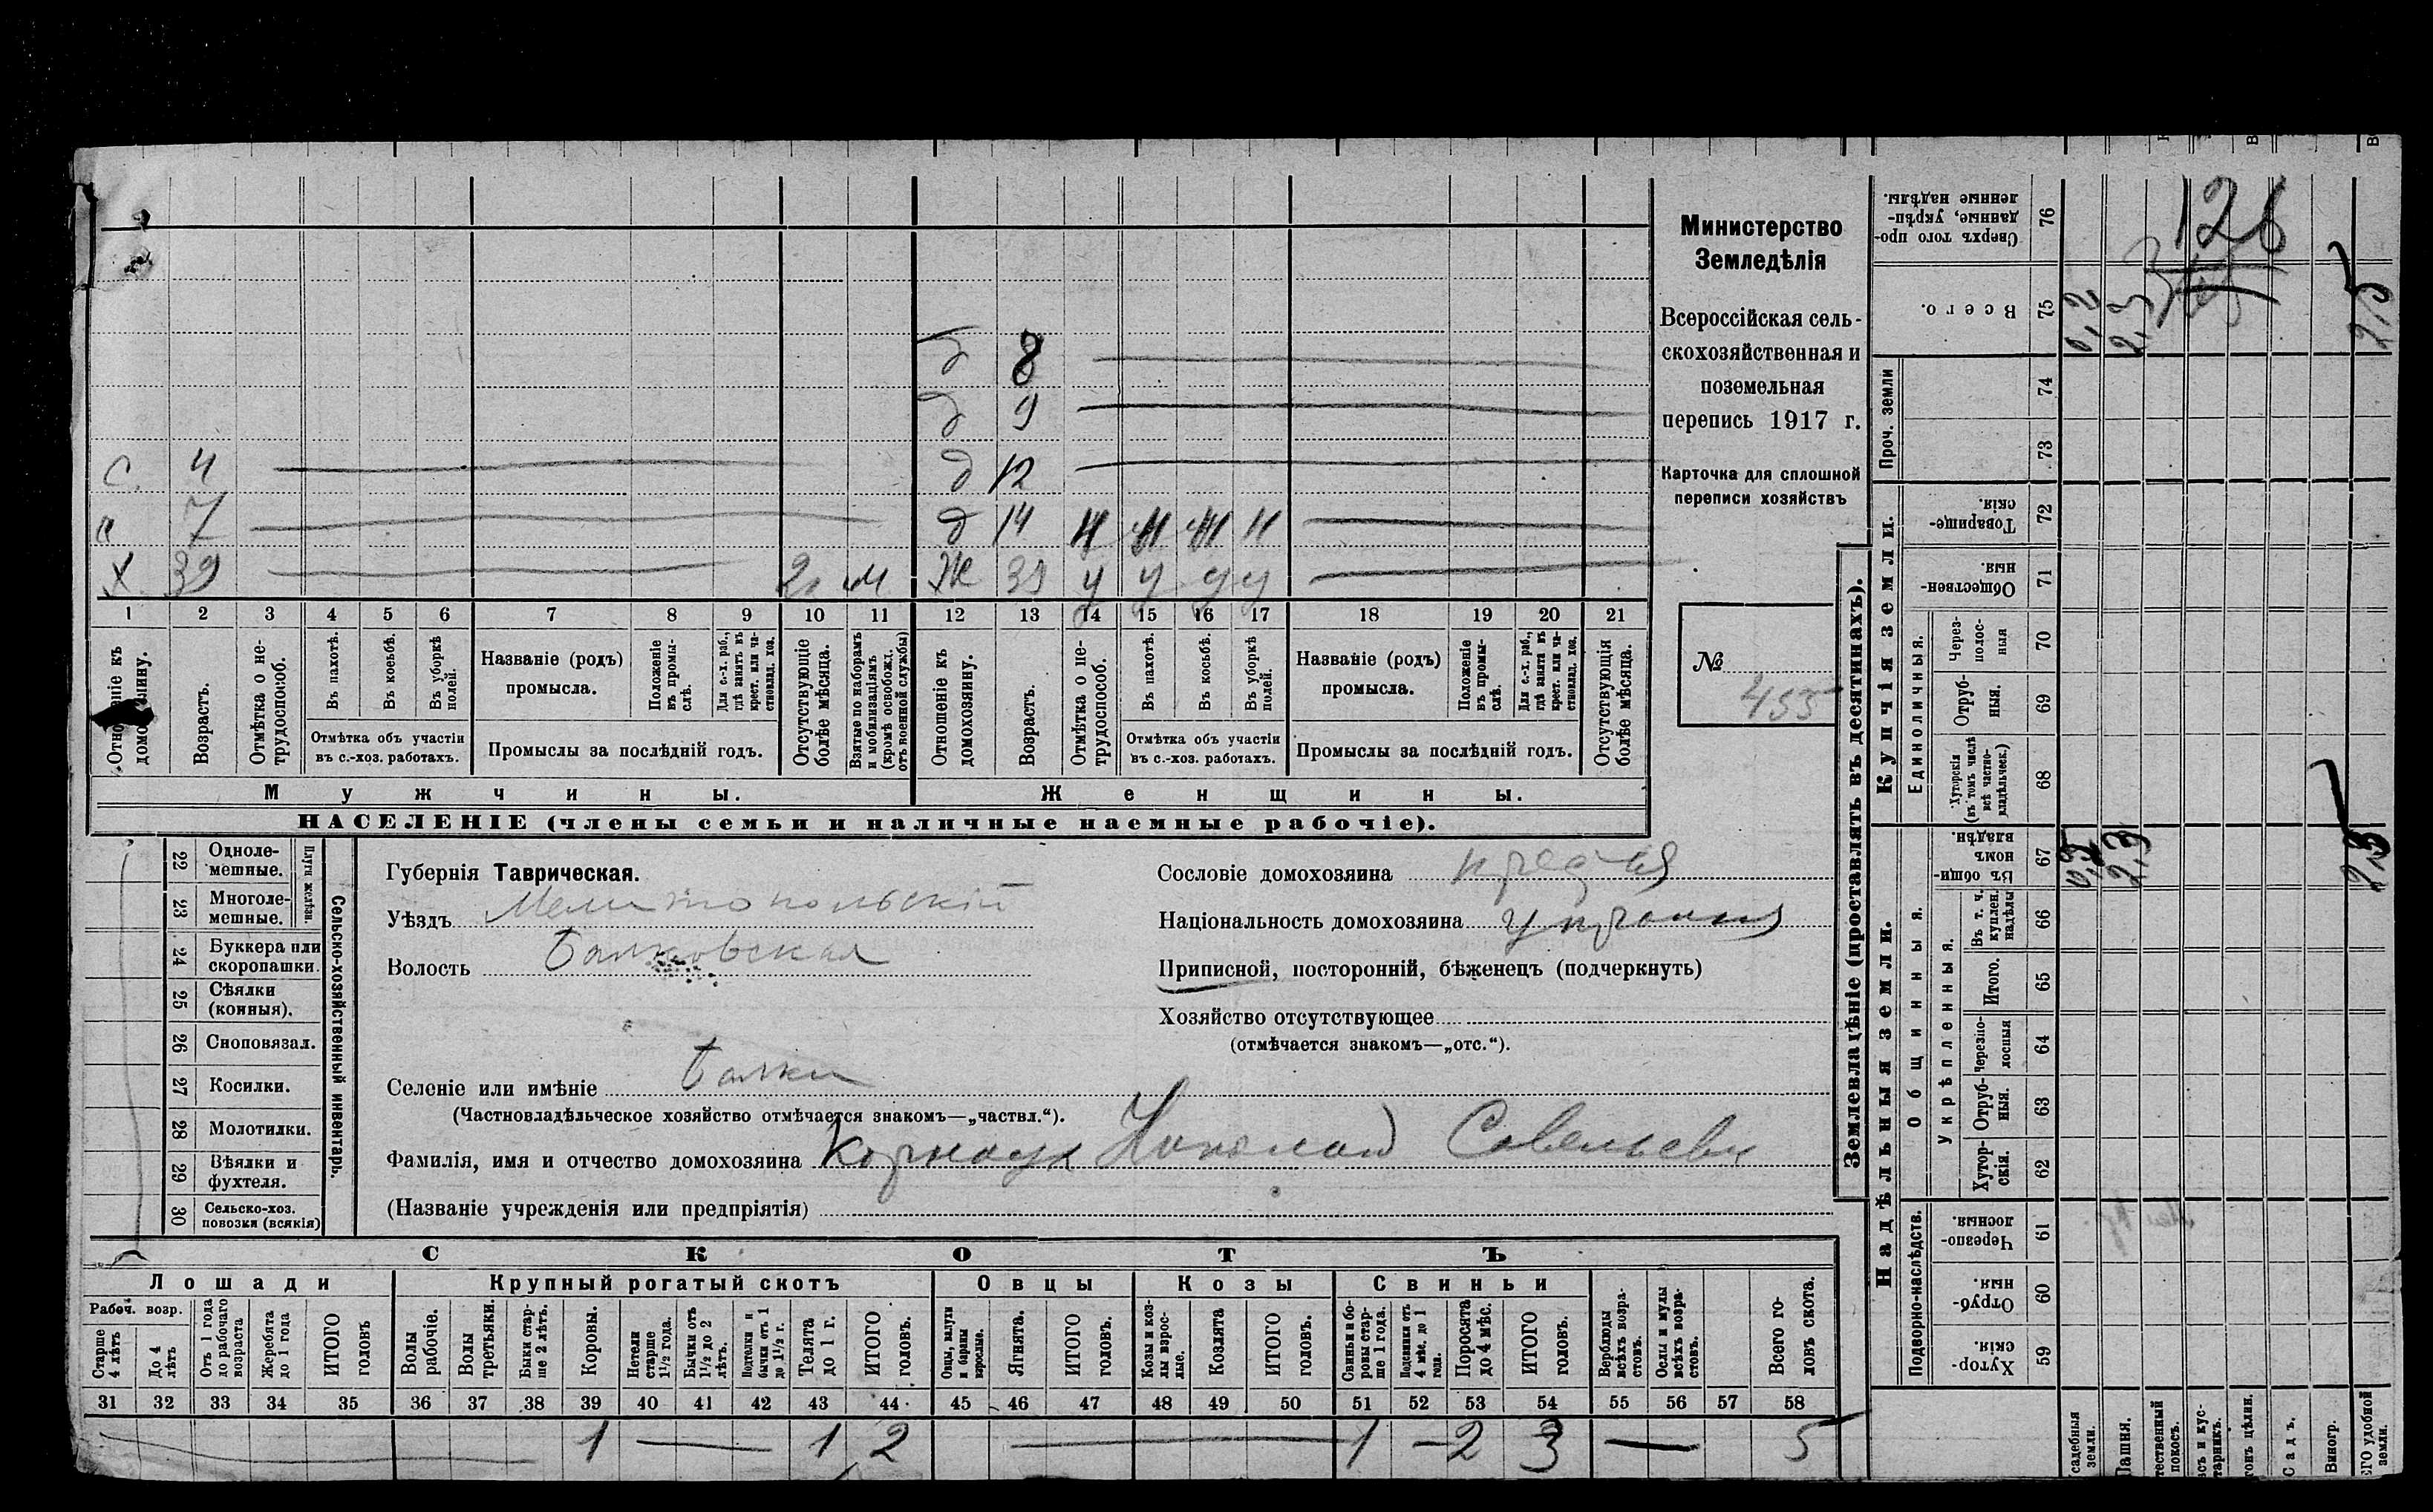 Министерство
Земледѣлія
Всероссійская сель-
скохозяйственная и
поземельная
перепись 1917 г.
Карточка для сплошной
переписи хозяйствъ
№
455
д 8
д 9
с. 4 д 12
с 7 д 14 Н Н Н Н
Х. 39 2. м Ж 39 У У У У
1 2 3 4 5 6 7 8 9 10 11 12 13 14 15 16 17 18 19 20 21
домохозяину.
Возрастъ.
Отмѣтка о не-
трудоспособ.
Въ пахотѣ.
Въ косьбѣ.
Въ уборкѣ
полей.
Отмѣтка объ участіи
въ с.-хоз. работахъ.
Названіе (родъ)
промысла.
Положеніе
въ промы-
слѣ.
Для с.-х. раб.,
гдѣ занятъ въ
крест. или ча-
стновлад. хоз.
Промыслы за послѣдній годъ.
Отсутствующіе
болѣе мѣсяца.
Взятые по наборамъ
и мобилизаціямъ
(кромѣ освобожд.
отъ военной службы)
Отношеніе къ
домохозяину.
Возрастъ.
Отмѣтка о не-
трудоспособ.
Въ пахотѣ.
Въ косьбѣ.
Въ уборкѣ
полей.
Отмѣтка объ участіи
въ с.-хоз. работахъ.
Названіе (родъ)
промысла.
Положеніе
въ промы-
слѣ.
Для с.-х. раб.,
гдѣ занята въ
крест. или ча-
стновлад. хоз.
Промыслы за послѣдній годъ.
Отсутствующія
болѣе мѣсяца.
Мужчины. Женщины.
НАСЕЛЕНІЕ (члены семьи и наличные наемные рабочіе).
22 Одноле-
мешные.
23 Многоле-
мешные.
Плуги желѣзн.
24 Буккера или
скоропашки.
25 Сѣялки
(конныя).
26 Сноповязал.
27 Косилки.
28 Молотилки.
29 Вѣялки и
фухтеля.
30 Сельско-хоз.
повозки (всякія)
Сельско-хозяйственный инвентарь.
Губернія Таврическая.
Уѣздъ Мелитопольскій
Волость Балковская
Селеніе или имѣніе Балки
(Частновладѣльческое хозяйство отмѣчается знакомъ—„частвл.“).
Фамилія, имя и отчество домохозяина Корноух Николай Савельевич
(Названіе учрежденія или предпріятія)
Сословіе домохозяина
Національность домохозяина
Приписной, посторонній, бѣженецъ (подчеркнуть)
Хозяйство отсутствующее
(отмѣчается знакомъ—„отс.“).
СКОТЪ
Лошади Крупный рогатый скотъ Овцы Козы Свиньи
Рабоч. возр.
Старше
4 лѣтъ
До 4
лѣтъ
Отъ 1 года
до рабочаго
возраста
Жеребята
до 1 года
ИТОГО
головъ
Волы
рабочіе.
Волы
третьяки.
Быки стар-
ше 2 лѣтъ.
Коровы.
Нетели
старше
1½ года.
Бычки отъ
1½ до 2
лѣтъ.
Подтелки и
бычки отъ 1
до 1½ г.
Телята
до 1 г.
ИТОГО
головъ.
Овцы, валухи
и бараны
взрослые.
Ягнята.
ИТОГО
головъ.
Козы и коз-
лы взрос-
лые.
Козлята
ИТОГО
головъ.
Свиньи и бо-
ровы стар-
ше 1 года.
Подсвинки отъ
4 мѣс. до 1
года.
Поросята
до 4 мѣс.
ИТОГО
головъ.
Верблюды
всѣхъ возра-
стовъ.
Ослы и мулы
всѣхъ возра-
стовъ.
Всего го-
ловъ скота.
31 32 33 34 35 36 37 38 39 40 41 42 43 44 45 46 47 48 49 50 51 52 53 54 55 56 57 58
1 — 1 2 — 1 — 2 3 — 5
Землевладѣніе (проставлять въ десятинахъ).
Сверхъ того про-
данные, укрѣп-
ленные надѣлы.
76
126
Всего.
75
0,2 2,3 2,5
Проч. земли
74
73
Купчія земли.
Товарище-
скія.
72
Обществен-
ныя.
71
Единоличныя.
Через-
полос-
ныя
70
Отруб-
ныя.
69
Хуторскія
(въ томъ числѣ
всѣ частно-
владѣльческ.)
68
Надѣльныя земли.
Общинныя.
Въ общи-
номъ
владѣн.
67
0,2 2,3 2,5
Укрѣпленныя.
Въ т. ч.
куплен.
надѣлы
66
Итого.
65
Черезпо-
лосныя
64
Отруб-
ныя.
63
Хутор-
скія.
62
Подворно-наслѣдств.
Черезпо-
лосныя.
61
Отруб-
ныя.
60
Хутор-
скія.
59
садебныя
земли.
Пашня.
тественный
покосъ.
всъ и кус-
тарникъ.
гонъ цѣлин.
Садъ.
Виногр.
ГО удобной
земли.